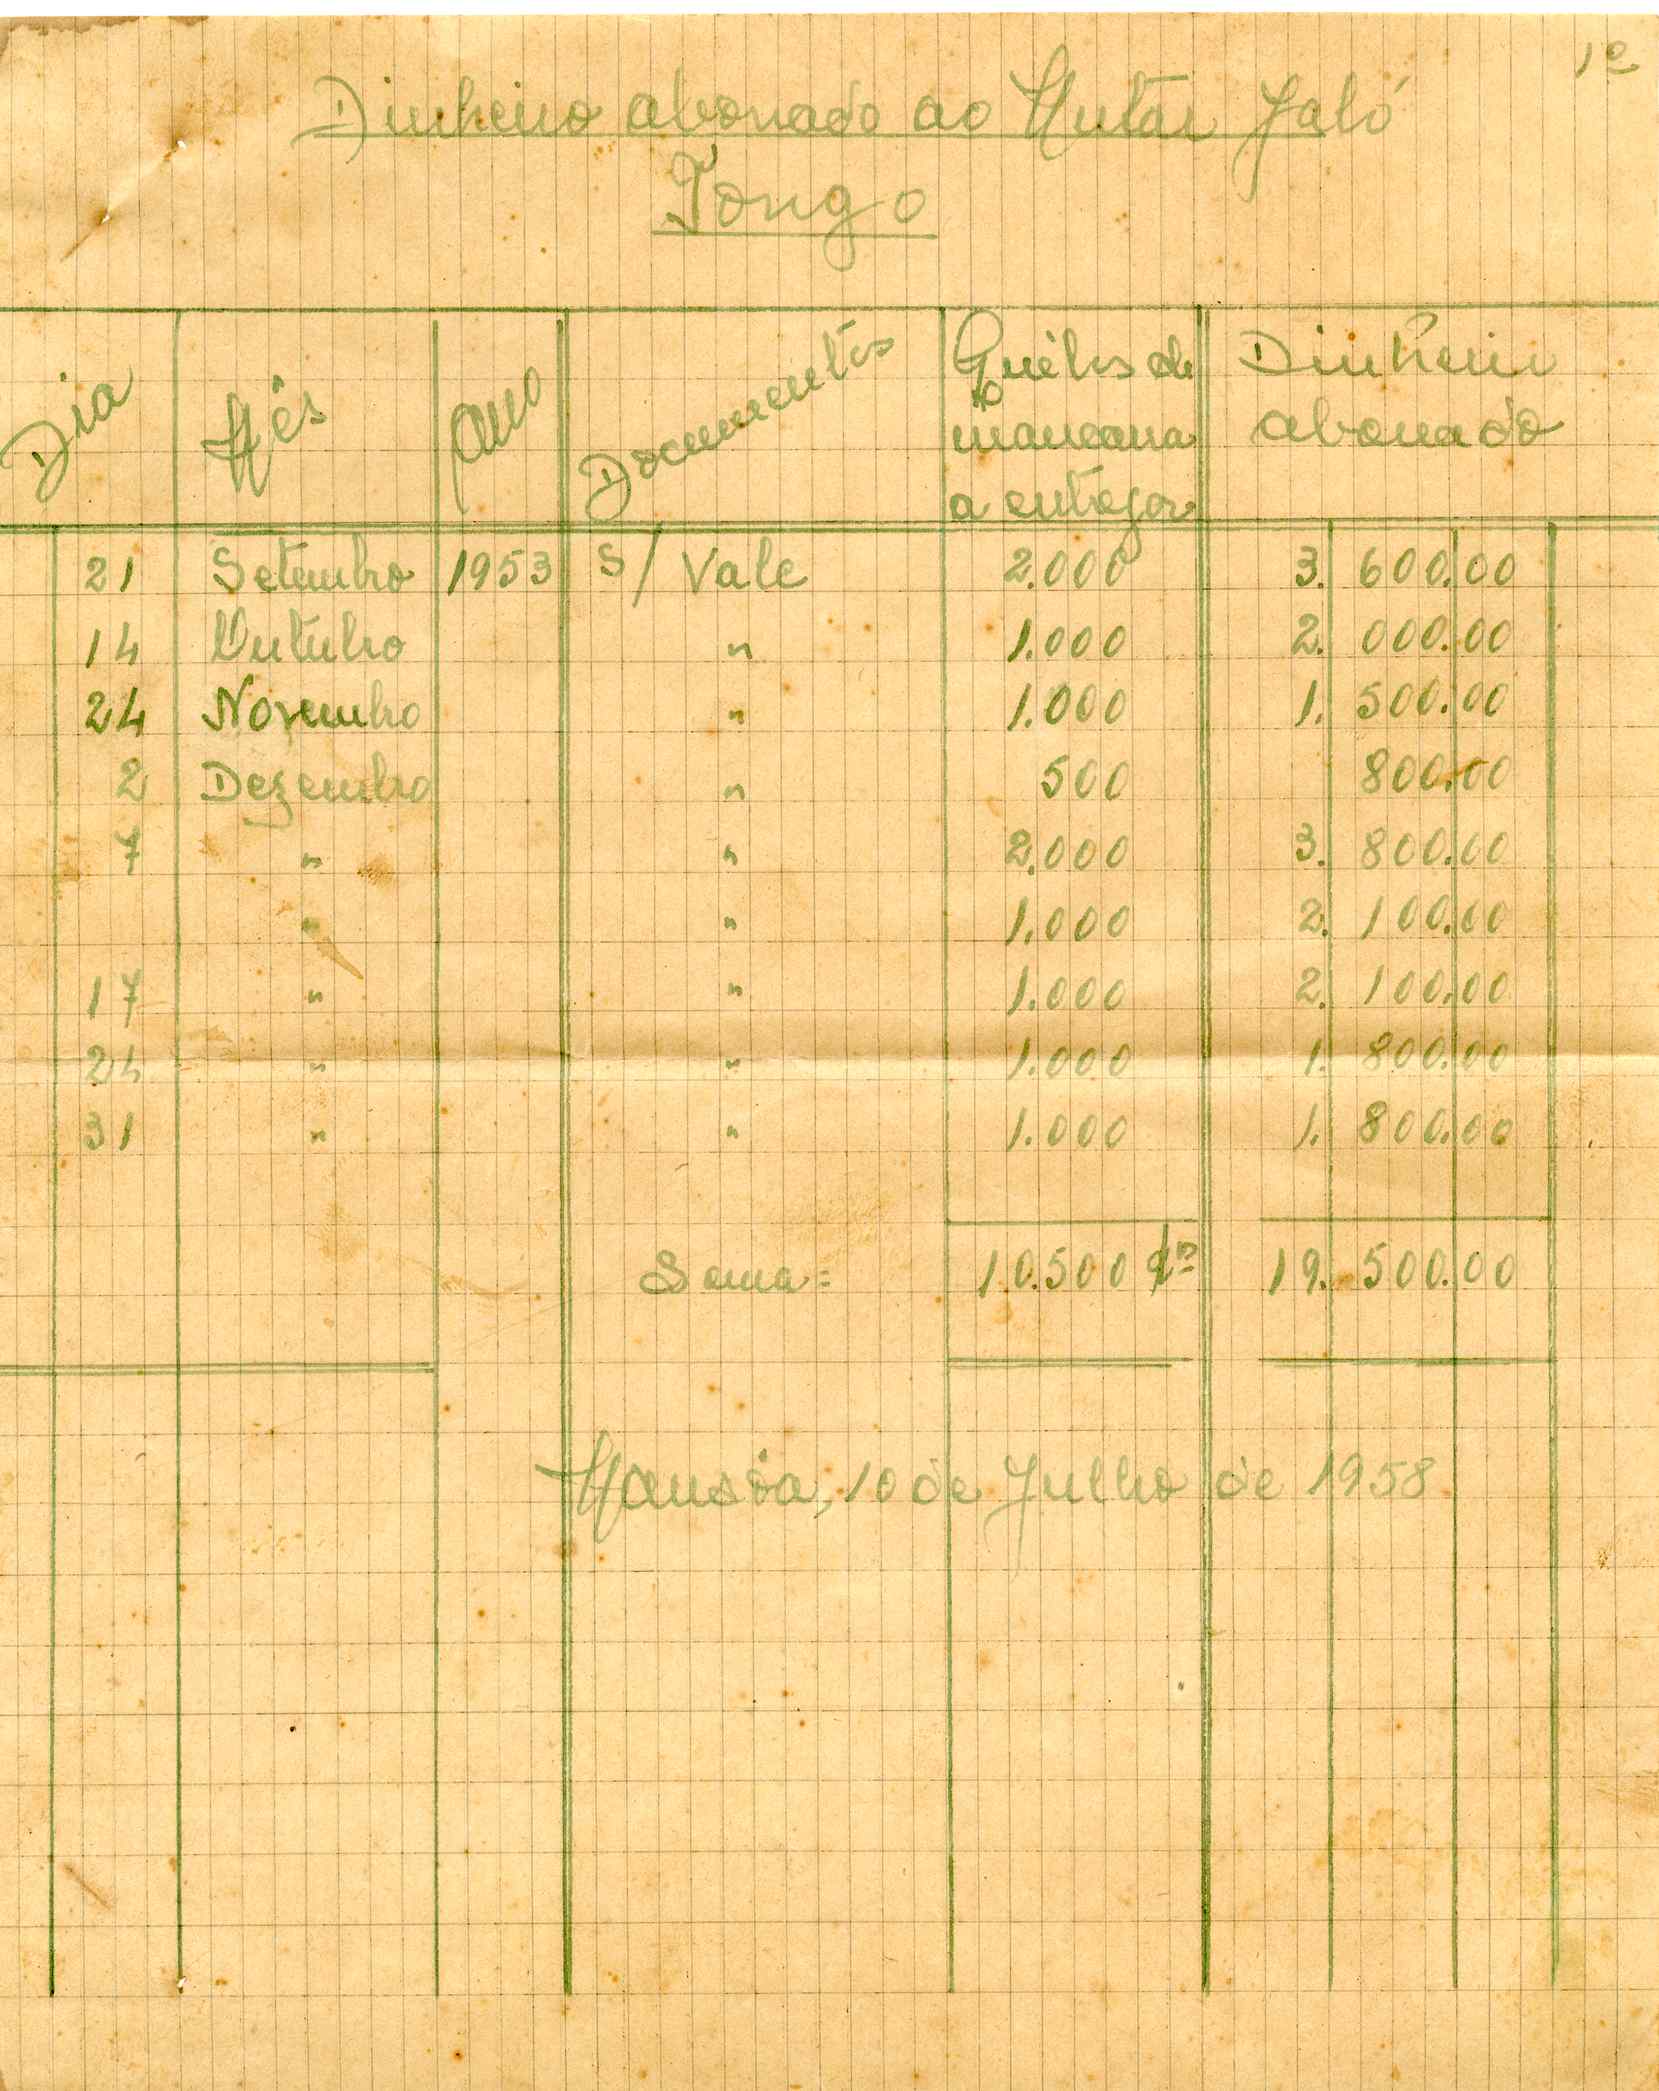 1º
Dinheiro abonado ao Mutar Jaló
Tongo
Dia Mês Ano Documentos Quilos de mancarra a entregar Dinheiro abonado
21 Setembro 1953 S/ Vale 2.000 3.600.00
14 Outubro " 1.000 2.000.00
24 Novembro " 1.000 1.500.00
2 Dezembro " 500 800.00
7 " " 2.000 3.800.00
" " 1.000 2.100.00
17 " " 1.000 2.100.00
24 " " 1.000 1.800.00
31 " " 1.000 1.800.00
Soma = 10.500 19.500.00
Mansôa, 10 de Julho de 1958